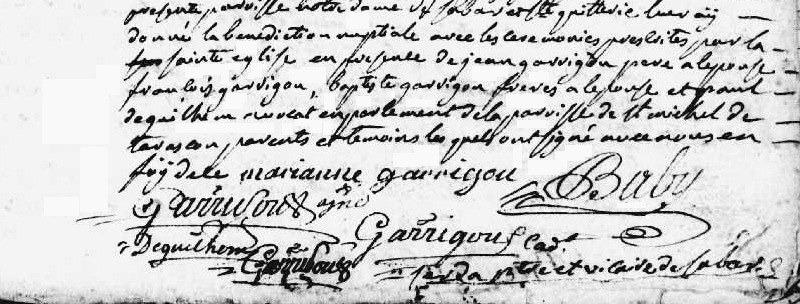 presente parroisse notre dame de sabar et ste quitterie leur aÿ
donné la benediction nuptiale avec les ceremonies prescrites par la
sainte eglise en presence de jean garrigou pere a lepouse
francois garrigou, baptiste garrigou freres a lepouse et paul
deguilhem avocat en parlement de la parroisse de st michel de
tarascon parents et temoins les quels ont signé avec nous en
foÿ de ce marianne garrigou
De Baby
Garrigous ayné
Deguilhem
Garrigous
Garrigous cadt
ptre et vicaire de sabar